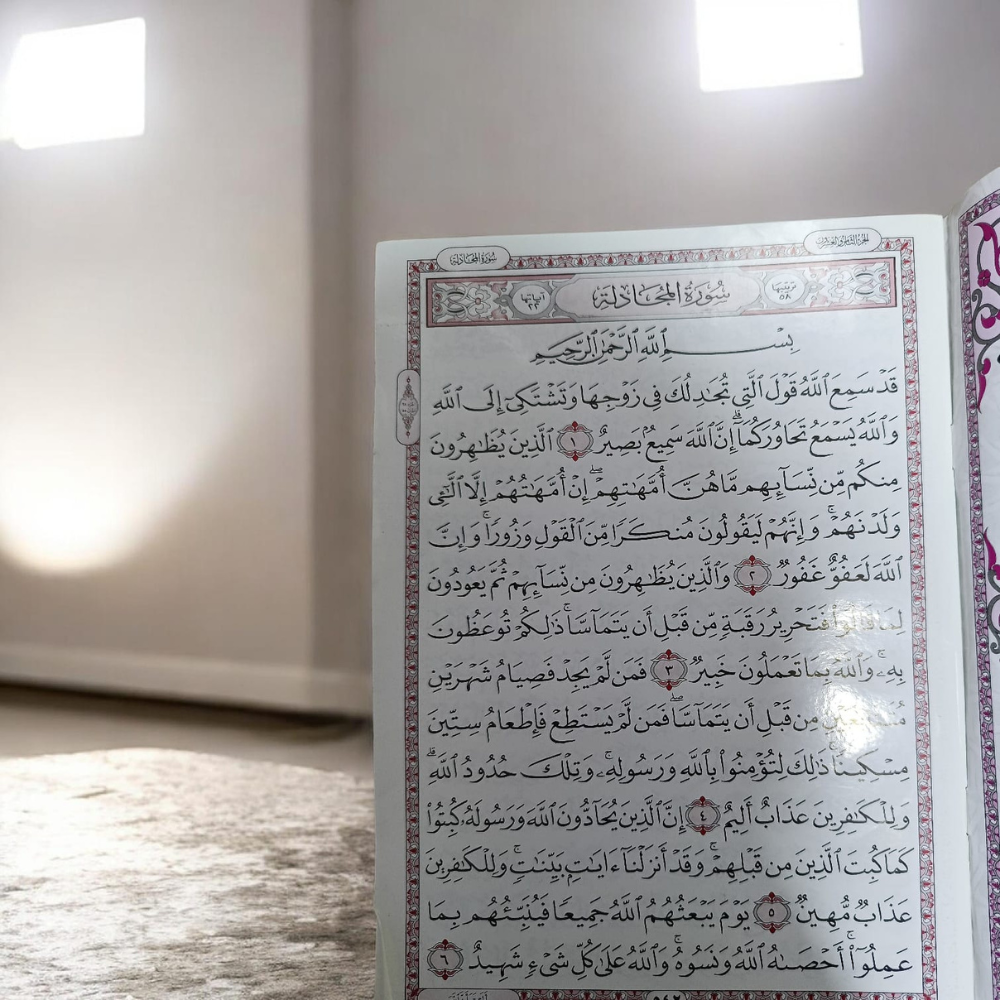 الجزء الثامن والعشرون
سُورَةُ المُجَادلة
ترتيبها ٥٨
سُورَةُ المُجَادلة
آياتها ٢٢
بِسْمِ ٱللَّهِ ٱلرَّحْمَٰنِ ٱلرَّحِيمِ
قَدْ سَمِعَ ٱللَّهُ قَوْلَ ٱلَّتِى تُجَٰدِلُكَ فِى زَوْجِهَا وَتَشْتَكِىٓ إِلَى ٱللَّهِ
وَٱللَّهُ يَسْمَعُ تَحَاوُرَكُمَآ ۚ إِنَّ ٱللَّهَ سَمِيعٌۢ بَصِيرٌ ١ ٱلَّذِينَ يُظَٰهِرُونَ
مِنكُم مِّن نِّسَآئِهِم مَّا هُنَّ أُمَّهَٰتِهِمْ ۖ إِنْ أُمَّهَٰتُهُمْ إِلَّا ٱلَّٰٓـِٔى
وَلَدْنَهُمْ ۚ وَإِنَّهُمْ لَيَقُولُونَ مُنكَرًا مِّنَ ٱلْقَوْلِ وَزُورًا ۚ وَإِنَّ
ٱللَّهَ لَعَفُوٌّ غَفُورٌ ٢ وَٱلَّذِينَ يُظَٰهِرُونَ مِن نِّسَآئِهِمْ ثُمَّ يَعُودُونَ
لِمَا قَالُوا۟ فَتَحْرِيرُ رَقَبَةٍ مِّن قَبْلِ أَن يَتَمَآسَّا ۚ ذَٰلِكُمْ تُوعَظُونَ
بِهِۦ ۚ وَٱللَّهُ بِمَا تَعْمَلُونَ خَبِيرٌ ٣ فَمَن لَّمْ يَجِدْ فَصِيَامُ شَهْرَيْنِ
مُتَتَابِعَيْنِ مِن قَبْلِ أَن يَتَمَآسَّا ۖ فَمَن لَّمْ يَسْتَطِعْ فَإِطْعَامُ سِتِّينَ
مِسْكِينًا ۚ ذَٰلِكَ لِتُؤْمِنُوا۟ بِٱللَّهِ وَرَسُولِهِۦ ۚ وَتِلْكَ حُدُودُ ٱللَّهِ ۗ
وَلِلْكَٰفِرِينَ عَذَابٌ أَلِيمٌ ٤ إِنَّ ٱلَّذِينَ يُحَآدُّونَ ٱللَّهَ وَرَسُولَهُۥ كُبِتُوا۟
كَمَا كُبِتَ ٱلَّذِينَ مِن قَبْلِهِمْ ۚ وَقَدْ أَنزَلْنَآ ءَايَٰتٍۭ بَيِّنَٰتٍ ۚ وَلِلْكَٰفِرِينَ
عَذَابٌ مُّهِينٌ ٥ يَوْمَ يَبْعَثُهُمُ ٱللَّهُ جَمِيعًا فَيُنَبِّئُهُم بِمَا
عَمِلُوٓا۟ ۚ أَحْصَىٰهُ ٱللَّهُ وَنَسُوهُ ۚ وَٱللَّهُ عَلَىٰ كُلِّ شَىْءٍ شَهِيدٌ ٦
٥٤٢